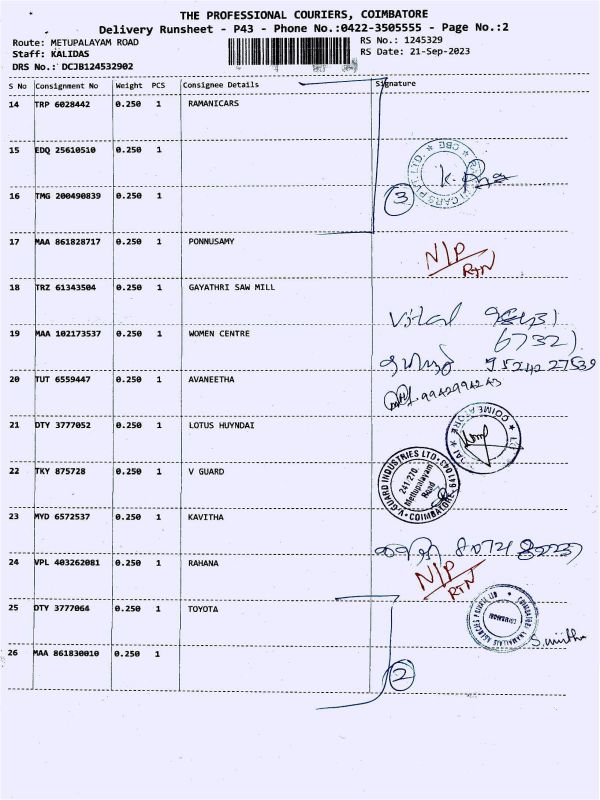 THE PROFESSIONAL COURIERS, COIMBATORE
Delivery Runsheet - P43 - Phone No.:0422-3505555 - Page No.:2
Route: METUPALAYAM ROAD
RS No.: 1245329
Staff: KALIDAS
RS Date: 21-Sep-2023
DRS No.: DCJB124532902
S No Consignment No Weight PCS Consignee Details Signature
14 TRP 6028442 0.250 1 RAMANICARS
15 EDQ 25610510 0.250 1
16 TMG 200490839 0.250 1
3
17 MAA 861828717 0.250 1 PONNUSAMY
N/P
RTN
18 TRZ 61343504 0.250 1 GAYATHRI SAW MILL
19 MAA 102173537 0.250 1 WOMEN CENTRE
20 TUT 6559447 0.250 1 AVANEETHA
9942994243
21 DTY 3777052 0.250 1 LOTUS HUYNDAI
22 TKY 875728 0.250 1 V GUARD
V-GUARD INDUSTRIES LTD
241-270,
Mettupalayam
Road
COIMBATORE
23 MYD 6572537 0.250 1 KAVITHA
24 VPL 403262081 0.250 1 RAHANA
N/P
RTN
25 DTY 3777064 0.250 1 TOYOTA
26 MAA 861830010 0.250 1
2